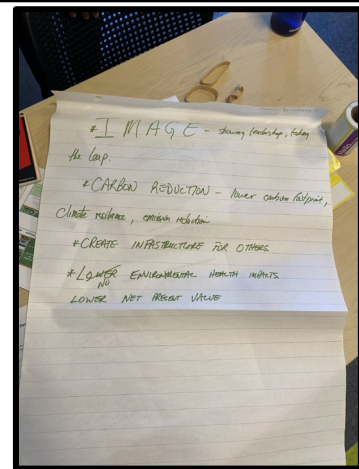 * IMAGE - showing leadership, taking
the leap.
* CARBON REDUCTION - lower carbon footprint,
Climate resilience, emission reduction
* CREATE INFASTRUCTURE FOR OTHERS
* LOWER ENVIRONMENTAL HEALTH IMPACTS
NO
LOWER NET PRESENT VALUE